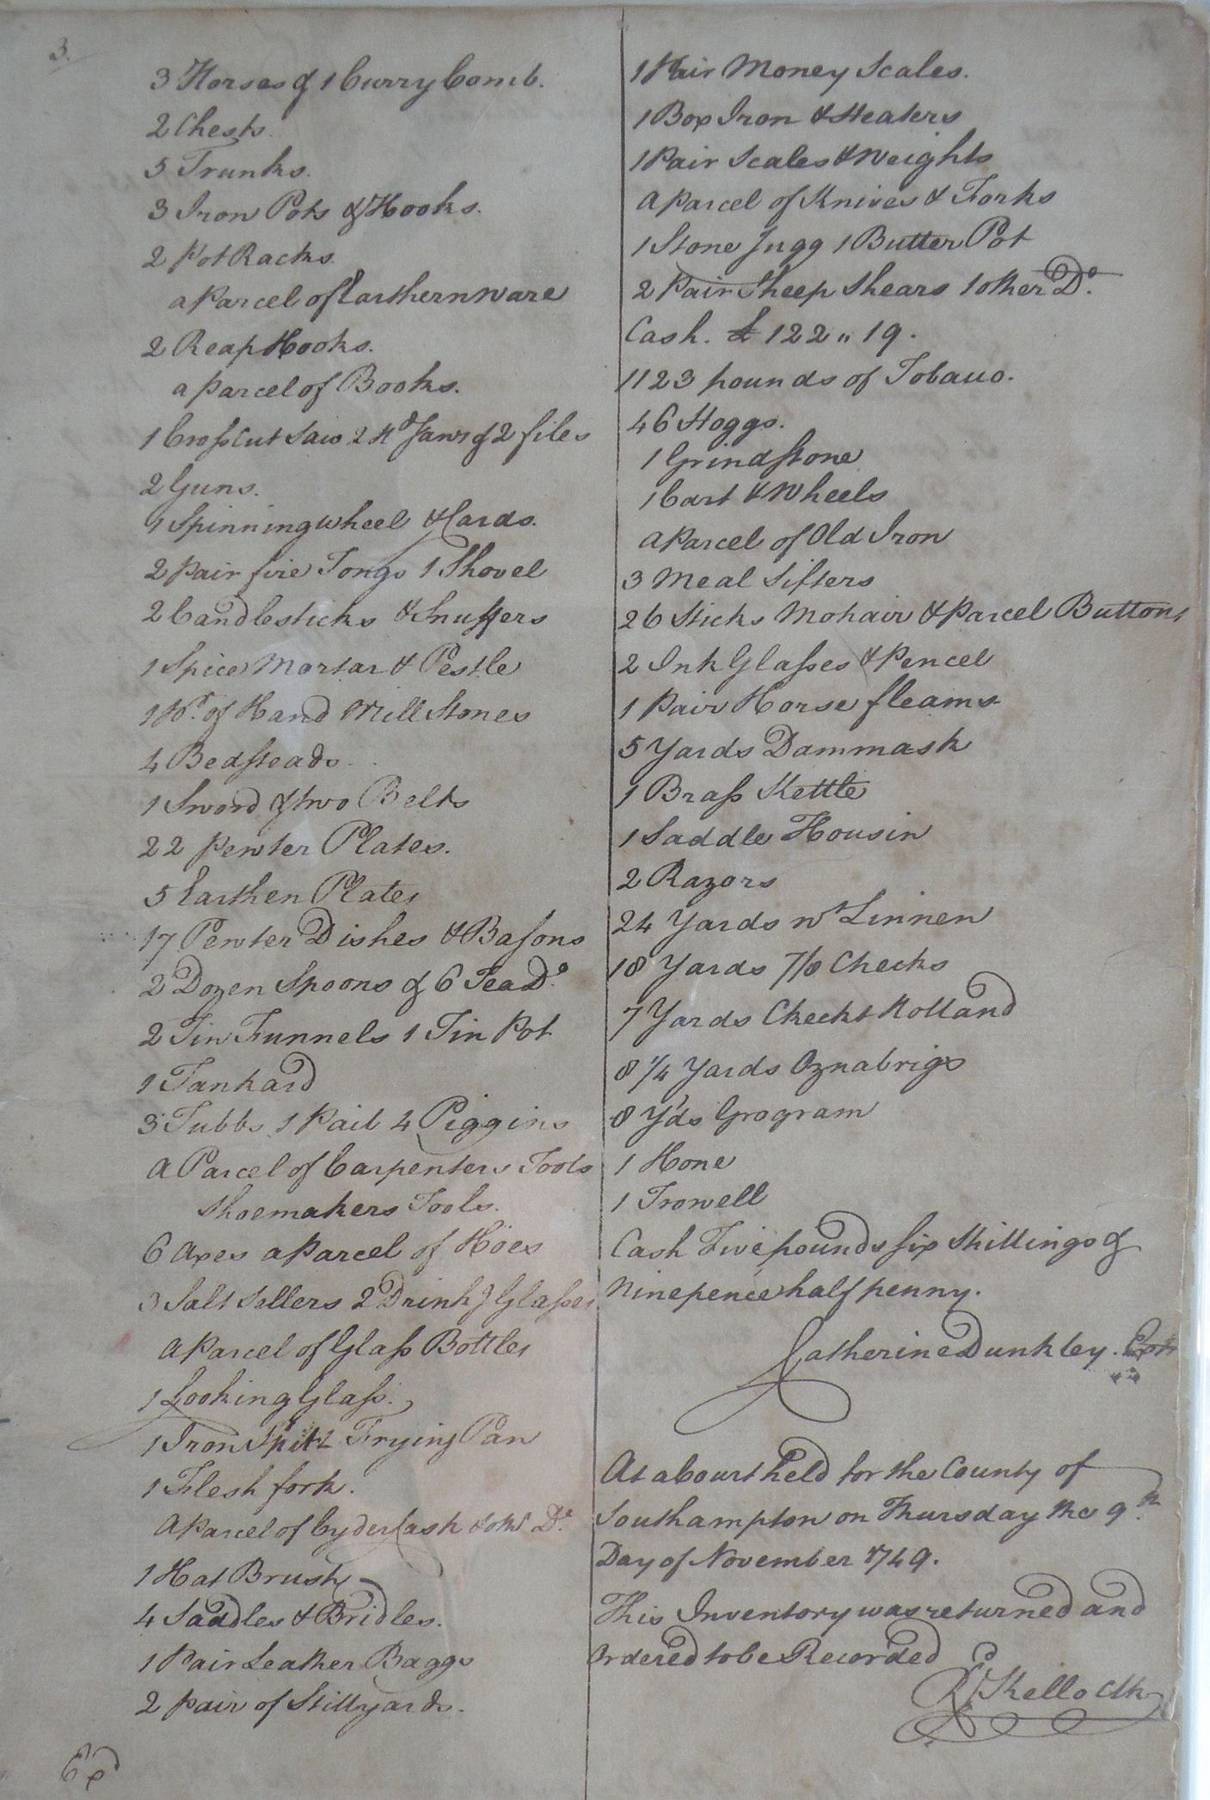 3.
3 Horses & 1 Curry Comb.
2 Chests
5 Trunks.
3 Iron Pots & Hooks.
2 Pot Racks
a Parcel of Earthernware
2 Reap Hooks.
a Parcel of Books.
1 Cross Cut Saw 2 Hd Saws & 2 files
2 Guns.
1 Spinning wheel & Cards.
2 Pair fire Tongs 1 Shovel
2 Candlesticks & Snuffers
1 Spice Mortar & Pestle
1 Pr. of Hand Mill Stones
4 Bedsteads
1 Sword & two Belts
22 Pewter Plates.
5 Earthen Plates
17 Pewter Dishes & Basons
2 Dozen Spoons & 6 Tea Do.
2 Tin Funnels 1 Tin Pot
1 Tankard
3 Tubbs 1 Pail 4 Piggins
A Parcel of Carpenters Tools
Shoemakers Tools.
6 Axes a Parcel of Hoes
3 Salt Sellers 2 Drinkg Glasses
A Parcel of Glass Bottles
1 Looking Glass.
1 Iron Spit 1 Frying Pan
1 Flesh fork.
A Parcel of Cyder Cask & othr Do.
1 Hat Brush
4 Saddles & Bridles.
1 Pair Leather Baggs
2 Pair of Stillyards.
1 Pair Money Scales.
1 Box Iron & Heaters
1 Pair Scales & Weights
A Parcel of Knives & Forks
1 Stone Jugg 1 Butter Pot
2 Pair Sheep Shears 1 other Do.
Cash. £ 122 " 19.
1123 pounds of Tobacco.
46 Hoggs.
1 Grindstone
1 Cart & Wheels
A Parcel of Old Iron
3 Meal Sifters
26 Sticks Mohair & Parcel Buttons
2 Ink Glasses & Pencel
1 Pair Horse fleams
5 Yards Dammask
1 Brass Kettle
1 Saddle Housin
2 Razors
24 Yards wt Linnen
18 Yards 7/8 Checks
7 Yards Checkt Holland
8 1/4 Yards Oznabrigs
8 Yds Grogram
1 Hone
1 Trowell
Cash Five pounds six Shillings &
Ninepence half penny.
Catherine Dunkley. Exx
At a Court held for the County of
Southampton on Thursday the 9th.
Day of November 1749.
This Inventory was returned and
Ordered to be Recorded
Rd. Kello Clk